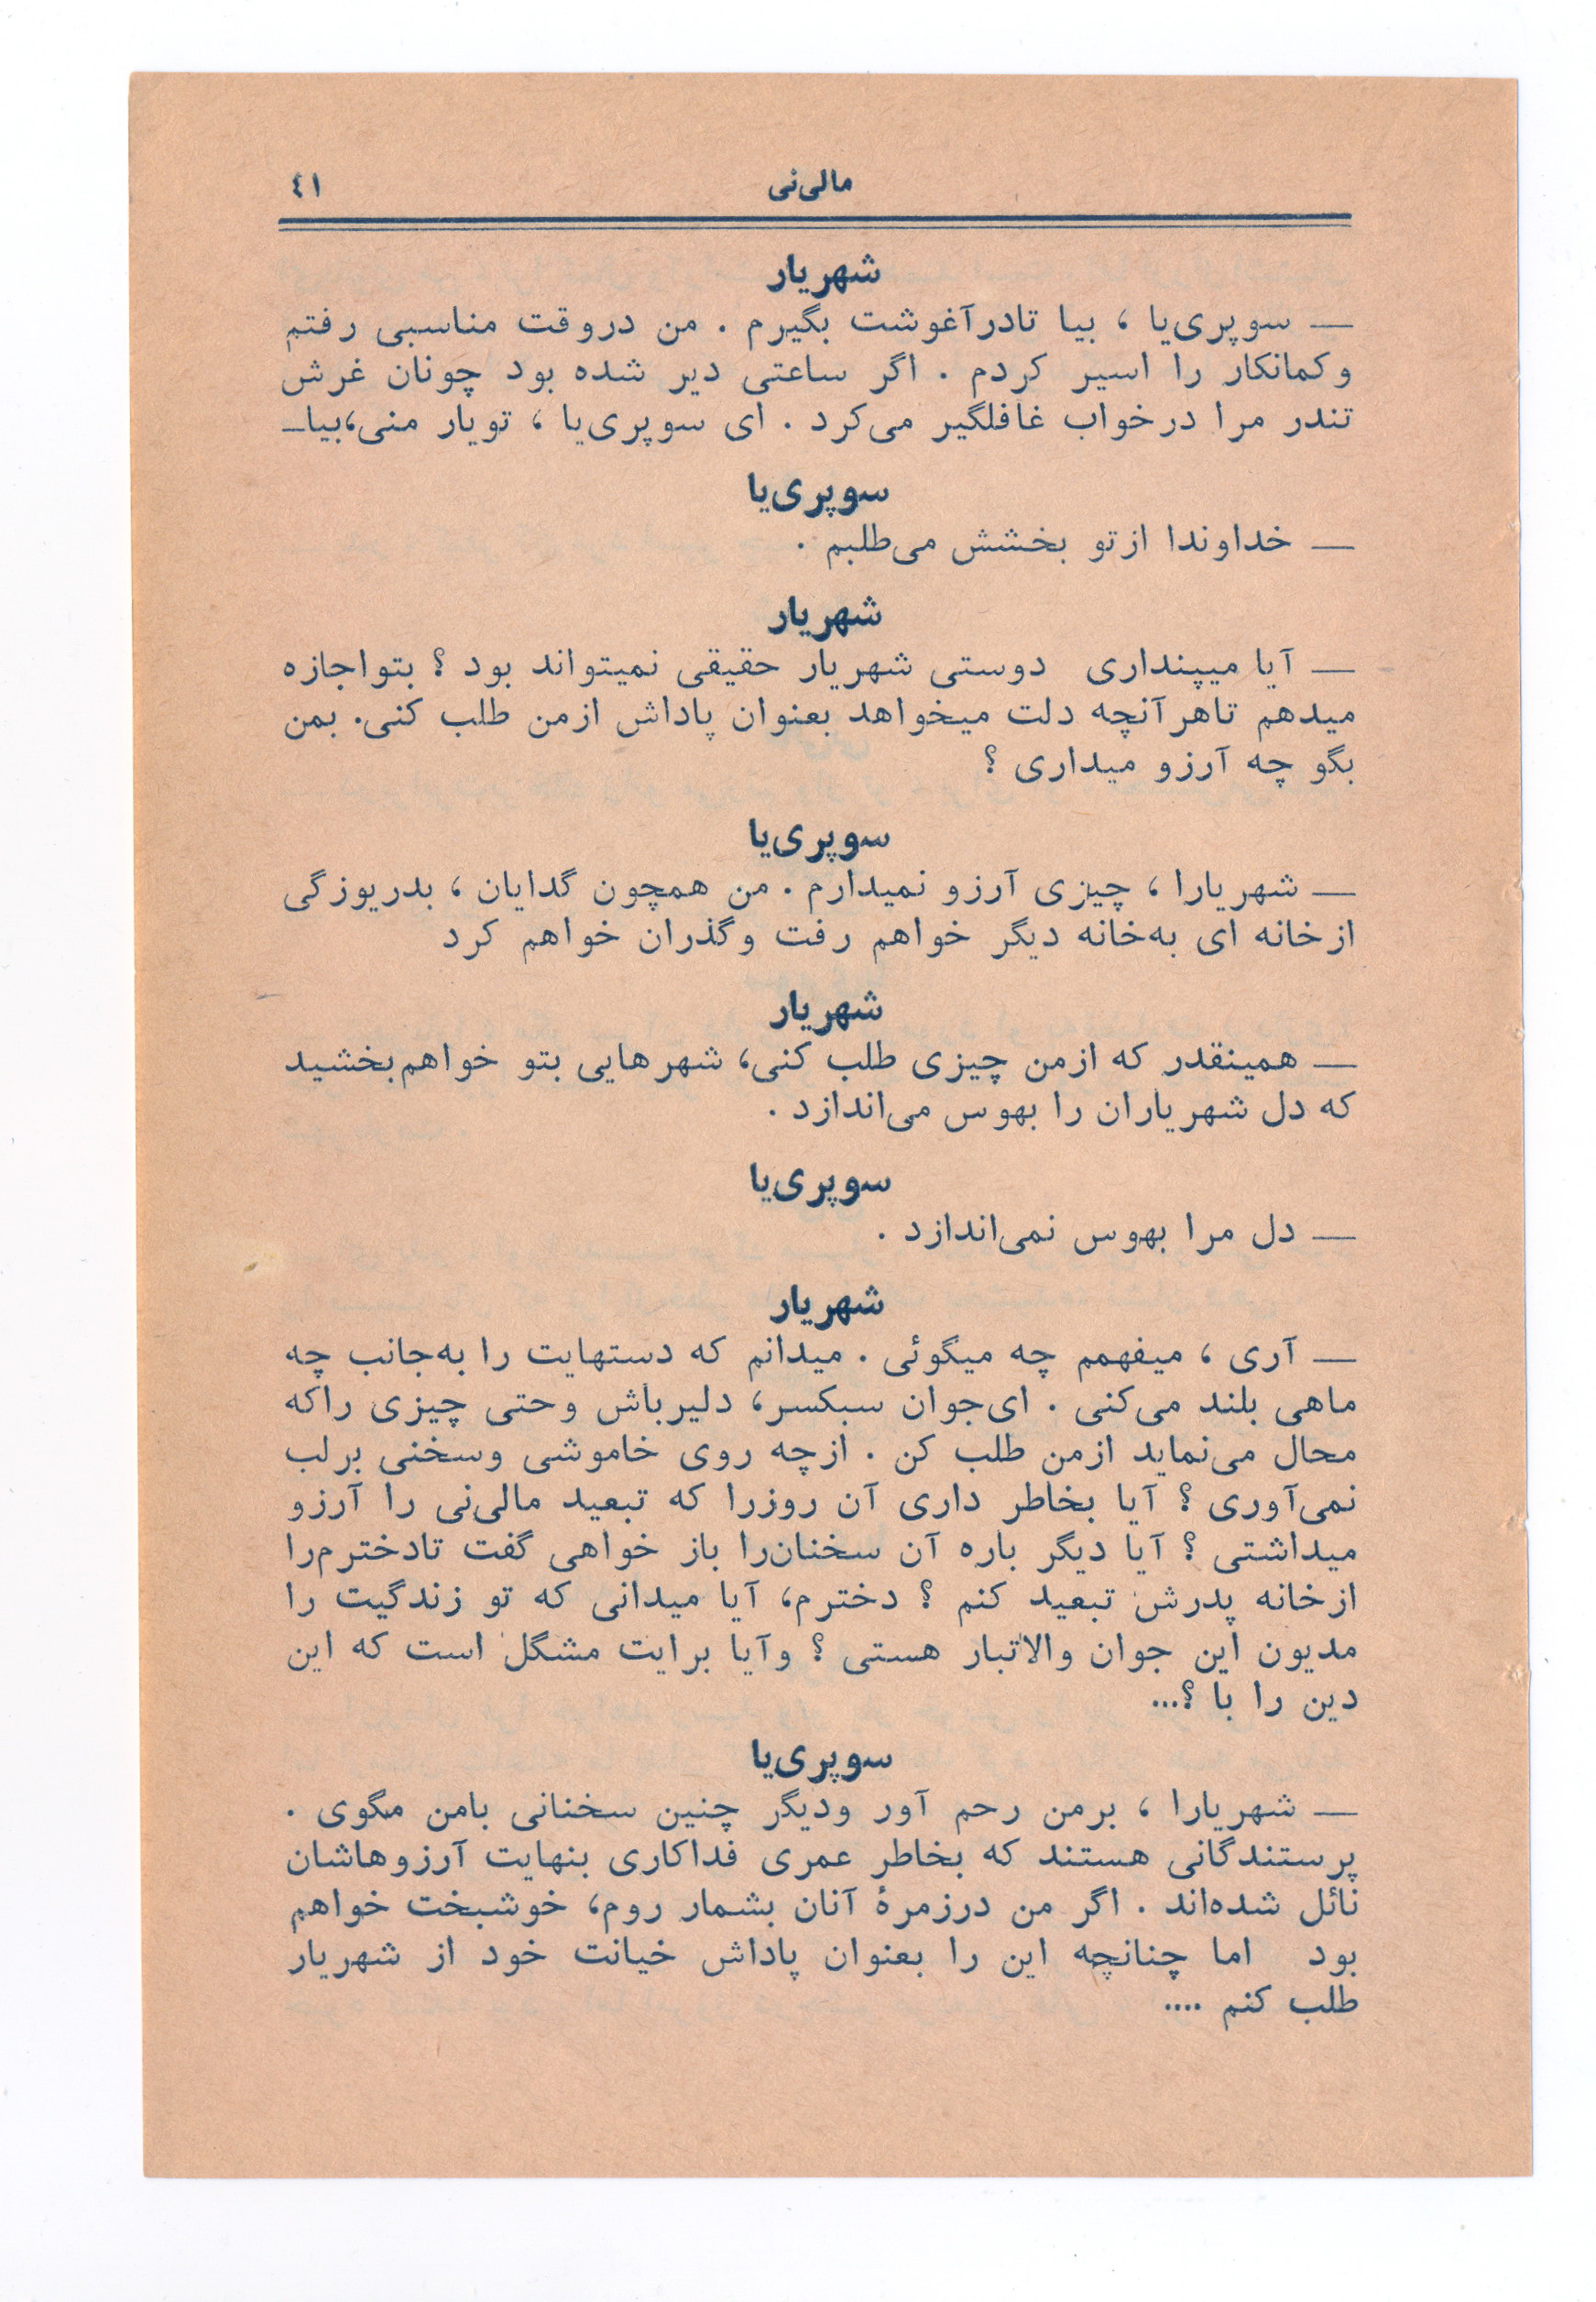 مالی‌نی ٤١
شهریار
— سوپری‌یا ، بیا تادرآغوشت بگیرم . من دروقت مناسبی رفتم
وکمانکار را اسیر کردم . اگر ساعتی دیر شده بود چونان غرش
تندر مرا درخواب غافلگیر می‌کرد . ای سوپری‌یا ، تویار منی،بیاـ
سوپری‌یا
— خداوندا ازتو بخشش می‌طلبم .
شهریار
— آیا میپنداری دوستی شهریار حقیقی نمیتواند بود ؟ بتواجازه
میدهم تاهرآنچه دلت میخواهد بعنوان پاداش ازمن طلب کنی. بمن
بگو چه آرزو میداری ؟
سوپری‌یا
— شهریارا ، چیزی آرزو نمیدارم . من همچون گدایان ، بدریوزگی
ازخانه ای به‌خانه دیگر خواهم رفت وگذران خواهم کرد
شهریار
— همینقدر که ازمن چیزی طلب کنی، شهرهایی بتو خواهم‌بخشید
که دل شهریاران را بهوس می‌اندازد .
سوپری‌یا
— دل مرا بهوس نمی‌اندازد .
شهریار
— آری ، میفهمم چه میگوئی . میدانم که دستهایت را به‌جانب چه
ماهی بلند می‌کنی . ای‌جوان سبکسر، دلیرباش وحتی چیزی راکه
محال می‌نماید ازمن طلب کن . ازچه روی خاموشی وسخنی برلب
نمی‌آوری ؟ آیا بخاطر داری آن روزرا که تبعید مالی‌نی را آرزو
میداشتی ؟ آیا دیگر باره آن سخنان‌را باز خواهی گفت تادخترم‌را
ازخانه پدرش تبعید کنم ؟ دخترم، آیا میدانی که تو زندگیت را
مدیون این جوان والاتبار هستی ؟ وآیا برایت مشگل است که این
دین را با ؟...
سوپری‌یا
— شهریارا ، برمن رحم آور ودیگر چنین سخنانی بامن مگوی .
پرستندگانی هستند که بخاطر عمری فداکاری بنهایت آرزوهاشان
نائل شده‌اند . اگر من درزمرهٔ آنان بشمار روم، خوشبخت خواهم
بود اما چنانچه این را بعنوان پاداش خیانت خود از شهریار
طلب کنم ....